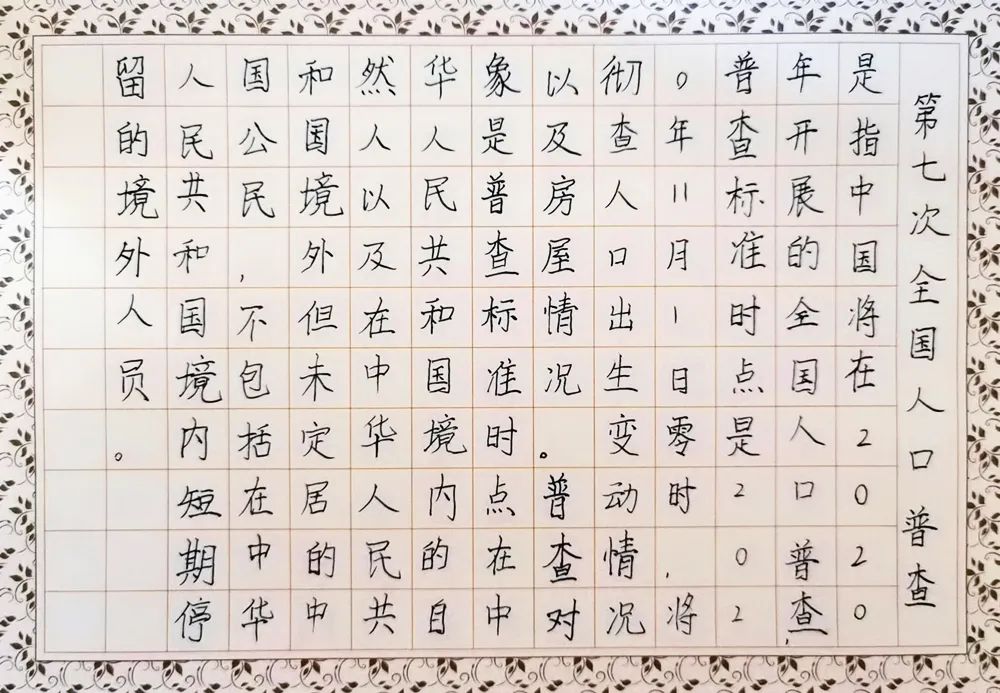 第七次全国人口普查
是指中国将在2020
年开展的全国人口普查,
普查标准时点是202
0年11月1日零时,将
彻查人口出生变动情况
以及房屋情况。普查对
象是普查标准时点在中
华人民共和国境内的自
然人以及在中华人民共
和国境外但未定居的中
国公民,不包括在中华
人民共和国境内短期停
留的境外人员。